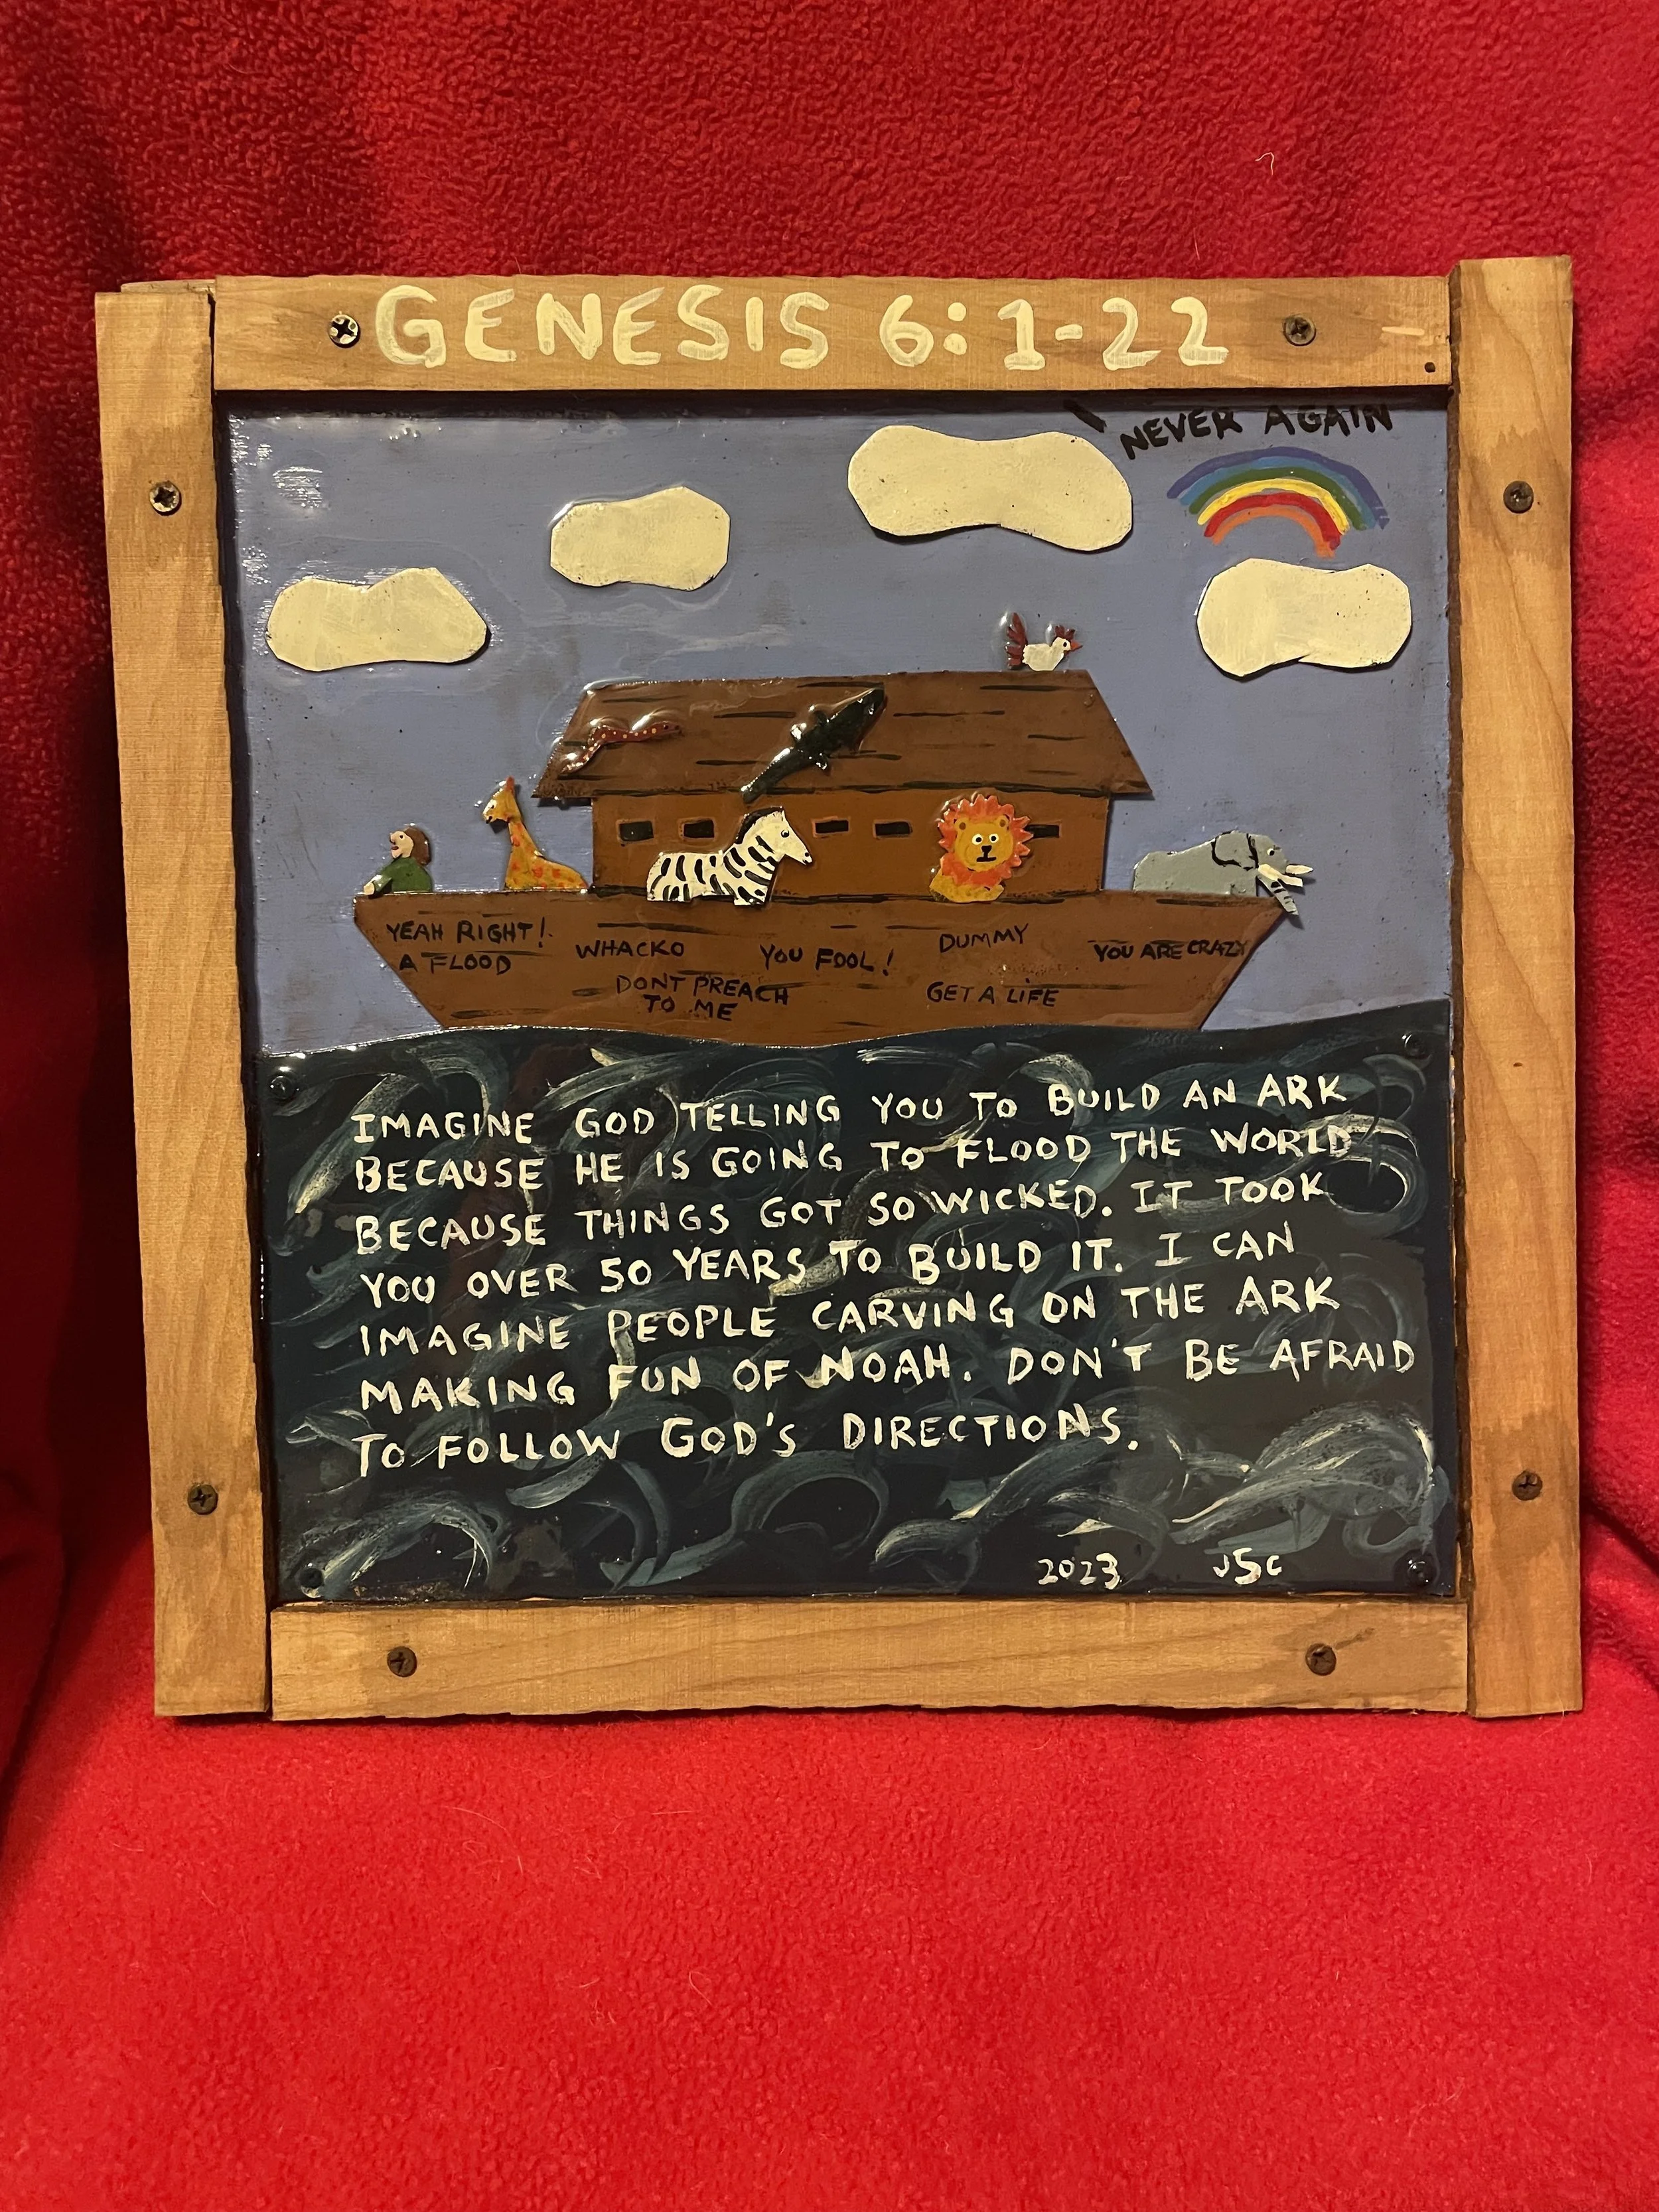 GENESIS 6:1-22
NEVER AGAIN
YEAH RIGHT!
A FLOOD
WHACKO
DONT PREACH
TO ME
YOU FOOL!
DUMMY
GET A LIFE
YOU ARE CRAZY
IMAGINE GOD TELLING YOU TO BUILD AN ARK
BECAUSE HE IS GOING TO FLOOD THE WORLD
BECAUSE THINGS GOT SO WICKED. IT TOOK
YOU OVER 50 YEARS TO BUILD IT. I CAN
IMAGINE PEOPLE CARVING ON THE ARK
MAKING FUN OF NOAH. DON'T BE AFRAID
TO FOLLOW GOD'S DIRECTIONS.
2023 JSC